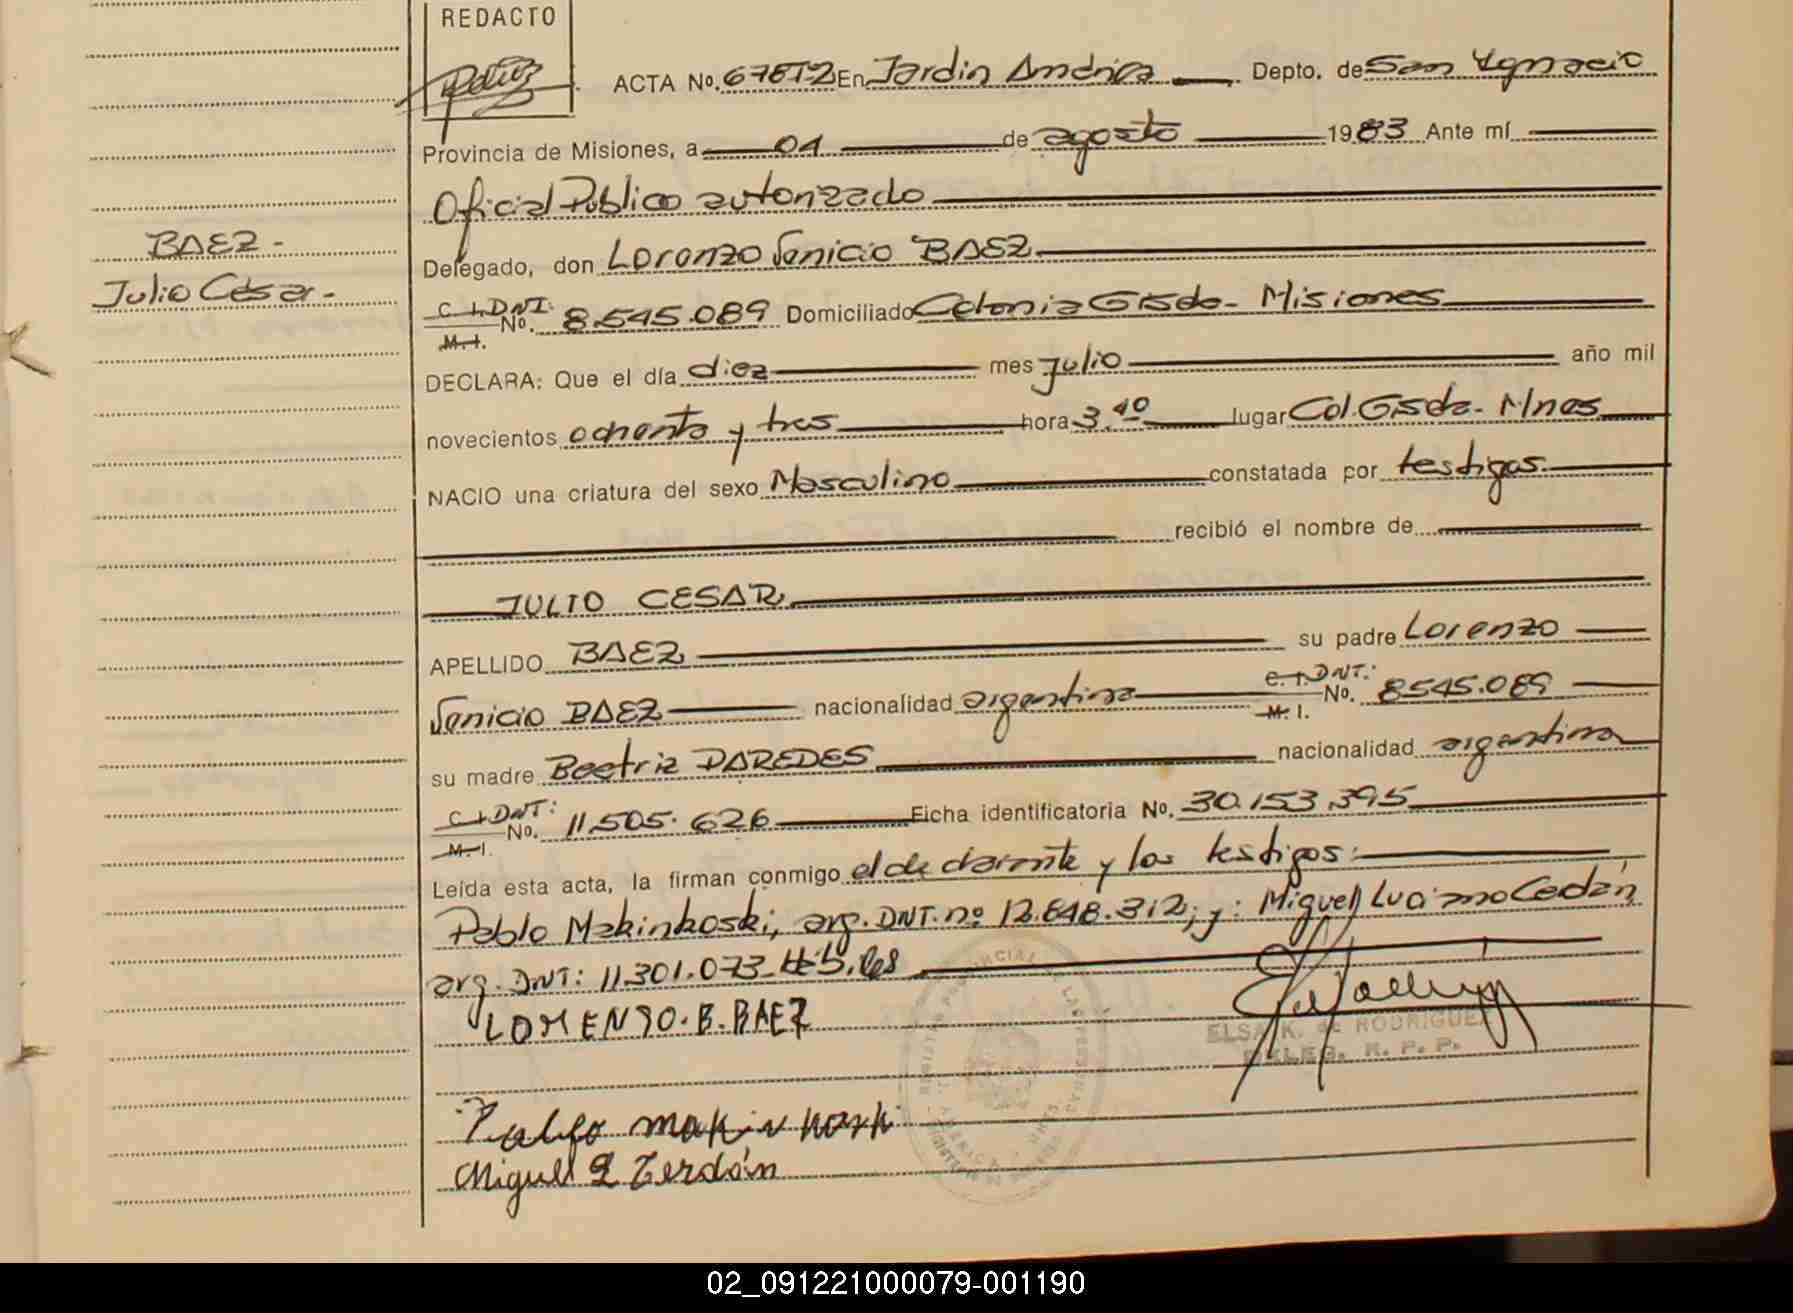 REDACTO
ACTA No. 678T2 En Jardin América Depto. de San Ygnacio
Provincia de Misiones, a 01 de agosto 1983 Ante mí
Oficial Público autorizado
BAEZ -
Delegado, don Lorenzo Benicio BAEZ
Julio César -
C.I. DNI: M.I. No. 8.545.089 Domiciliado Colonia Gisela - Misiones
DECLARA: Que el día diez mes Julio año mil
novecientos ochenta y tres hora 3.40 lugar Col. Gisela - Mnes
NACIO una criatura del sexo Masculino constatada por testigos
recibió el nombre de
JULIO CESAR
APELLIDO BAEZ su padre Lorenzo
Benicio BAEZ nacionalidad argentina C.I. DNI: M.I. No. 8545.089
su madre Beatriz PAREDES nacionalidad argentina
C.I. DNI: M.I. No. 11.505.626 Ficha identificatoria No. 30.153.395
Leída esta acta, la firman conmigo el declarante y los testigos:
Pablo Makinkoski, arg. DNI. nº 12.648.312; y: Miguel Luciano Cedán
arg. DNI: 11.301.073
LORENSO. B. BAEZ
ELSA K. de RODRIGUEZ
DELEG. R. P. P.
Miguel L
02_091221000079-001190